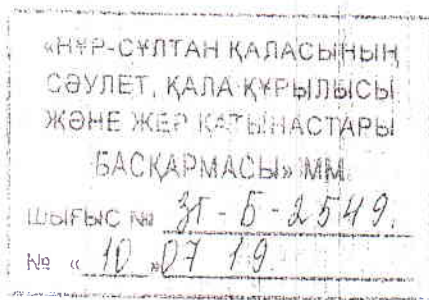 «НҰР-СҰЛТАН ҚАЛАСЫНЫҢ
СӘУЛЕТ, ҚАЛА ҚҰРЫЛЫСЫ
ЖӘНЕ ЖЕР ҚАТЫНАСТАРЫ
БАСҚАРМАСЫ» ММ
ШЫҒЫС № ЗТ - Б - 2549.
№ « 10 » 07 19.